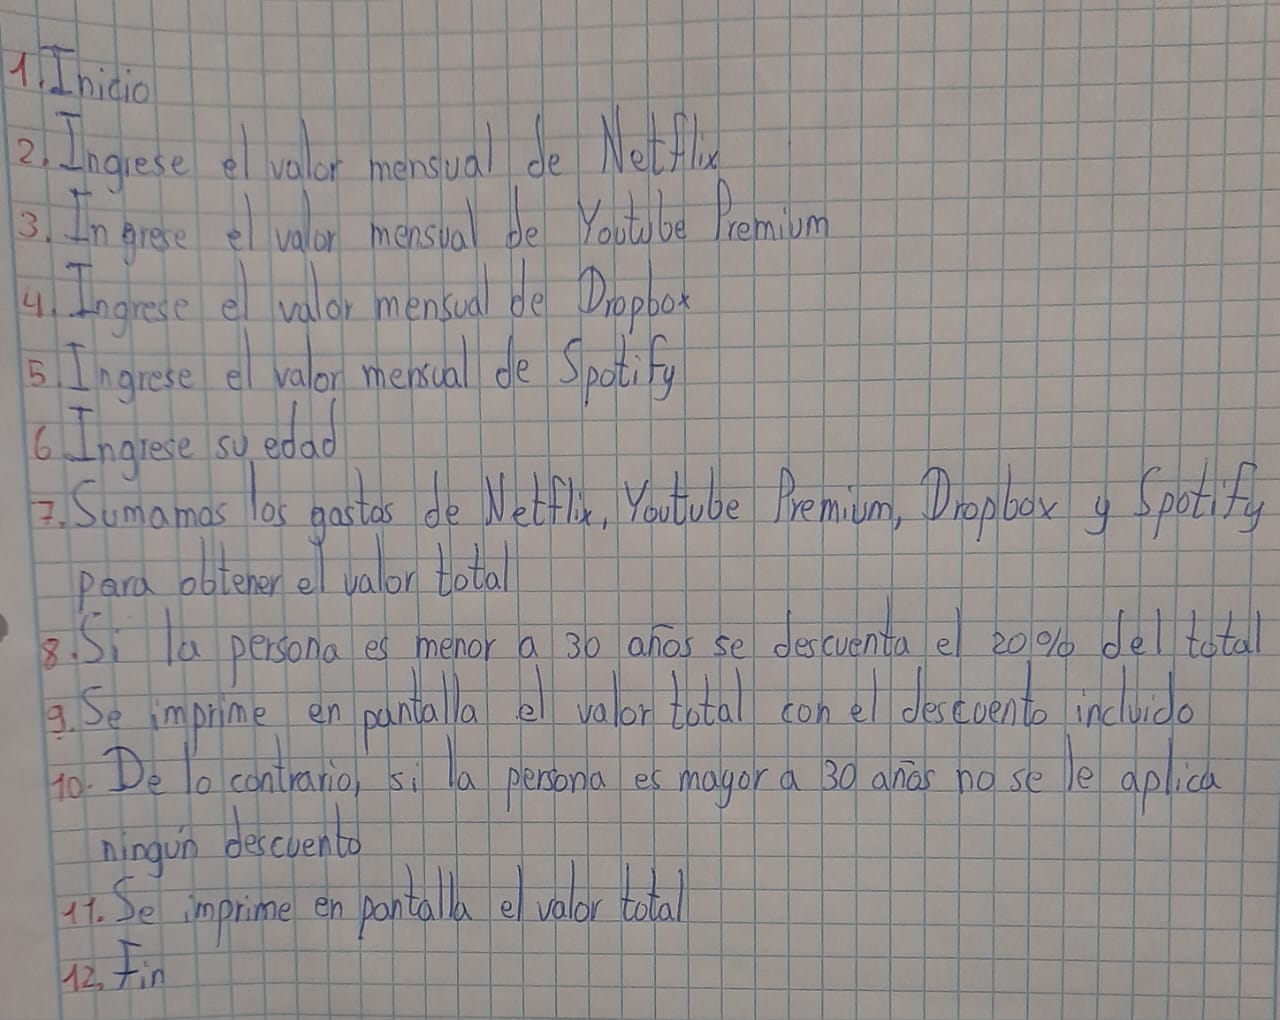 1. Inicio
2. Ingrese el valor mensual de Netflix
3. Ingrese el valor mensual de Youtube Premium
4. Ingrese el valor mensual de Dropbox
5 Ingrese el valor mensual de Spotify
6 Ingrese su edad
7. Sumamos los gastos de Netflix, Youtube Premium, Dropbox y Spotify
para obtener el valor total
8. Si la persona es menor a 30 años se descuenta el 20% del total
9. Se imprime en pantalla el valor total con el descuento incluido
10. De lo contrario, si la persona es mayor a 30 años no se le aplica
ningún descuento
11. Se imprime en pantalla el valor total
12. Fin